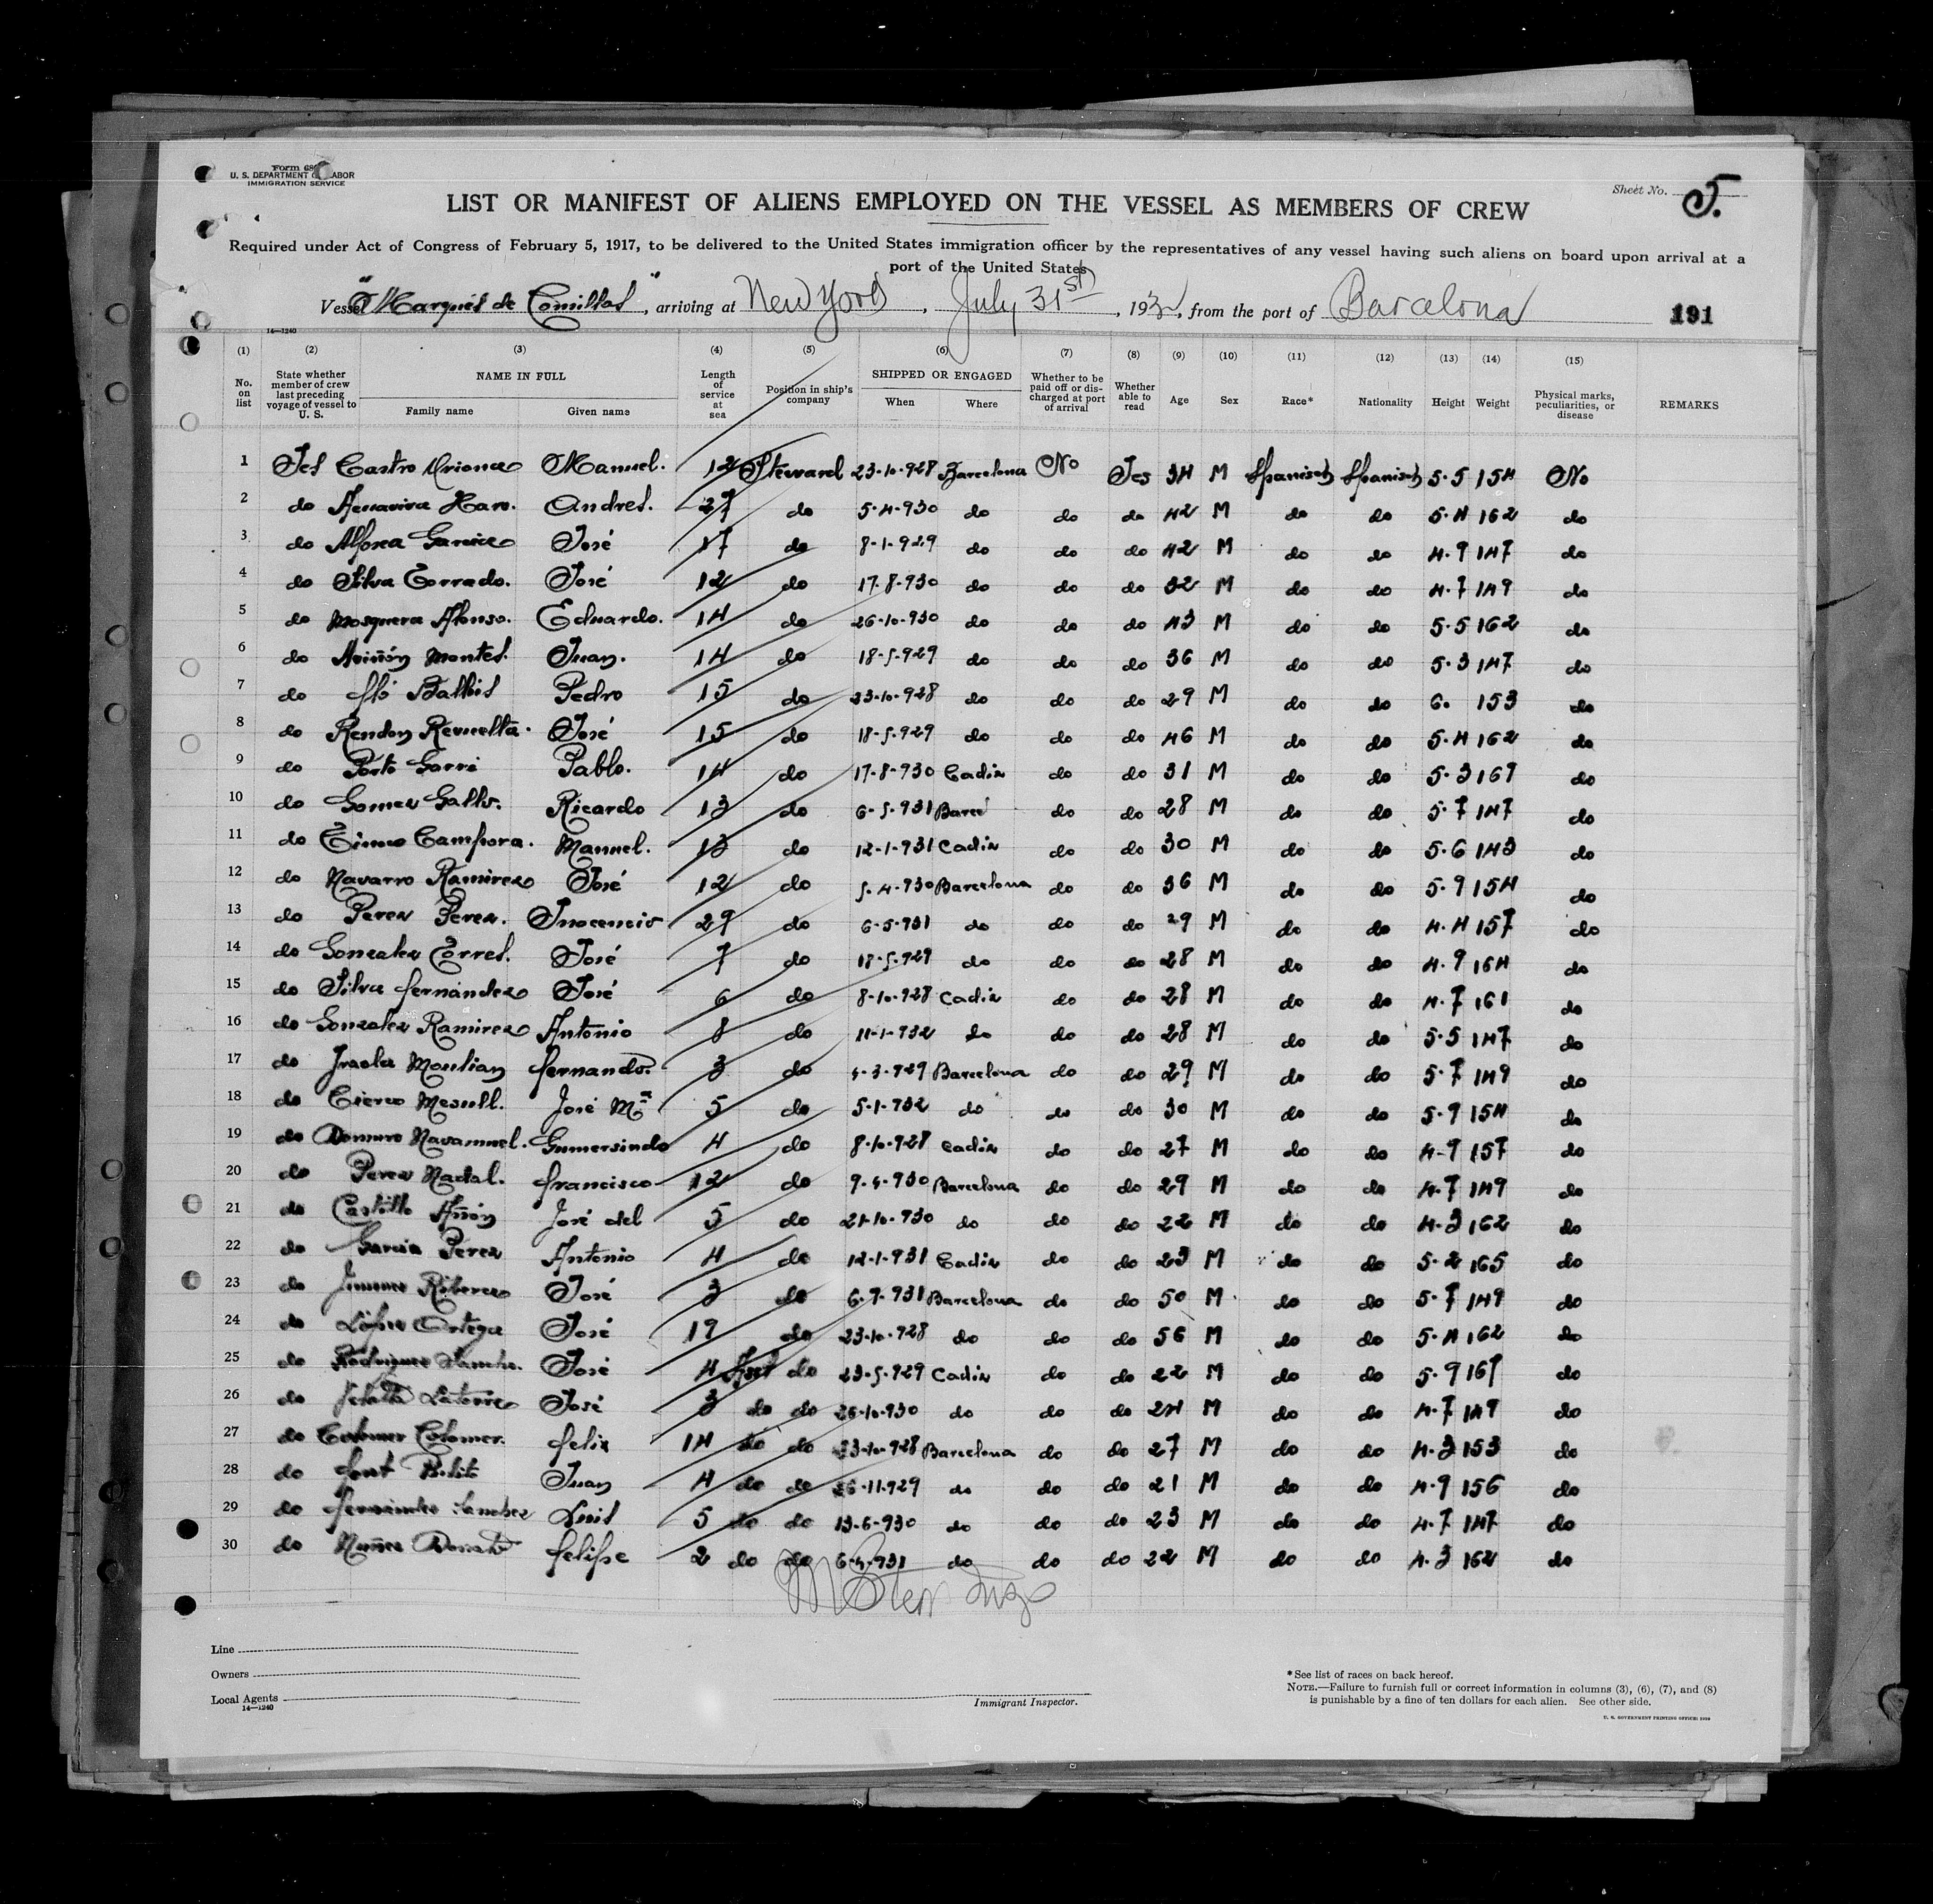 Form 68
U. S. DEPARTMENT OF LABOR
IMMIGRATION SERVICE
Sheet No. 5.
LIST OR MANIFEST OF ALIENS EMPLOYED ON THE VESSEL AS MEMBERS OF CREW
Required under Act of Congress of February 5, 1917, to be delivered to the United States immigration officer by the representatives of any vessel having such aliens on board upon arrival at a
port of the United States
Vessel "Marqués de Comillas", arriving at New York, July 31st, 1932, from the port of Barcelona 191
14—1240
(1) (2) (3) (4) (5) (6) (7) (8) (9) (10) (11) (12) (13) (14) (15)
No. on list State whether member of crew last preceding voyage of vessel to U. S. NAME IN FULL Family name Given name Length of service at sea Position in ship's company SHIPPED OR ENGAGED When Where Whether to be paid off or discharged at port of arrival Whether able to read Age Sex Race* Nationality Height Weight Physical marks, peculiarities, or disease REMARKS
1 Yes Castro Manuel. 12 Steward 23-10-928 Barcelona No Yes 34 M Spanish Spanish 5-5 154 No
2 do Haro. Andres. 27 do 5-4-930 do do do 42 M do do 5-4 162 do
3 do Garcia José 17 do 8-1-929 do do do 42 M do do 4-9 147 do
4 do Silva Torrado. José 12 do 17-8-930 do do do 32 M do do 4-7 149 do
5 do Mosquera Alonso. Eduardo. 14 do 26-10-930 do do do 43 M do do 5-5 162 do
6 do Aviñón Montes. Juan. 14 do 18-5-929 do do do 36 M do do 5-3 147 do
7 do Pedro 15 do 23-10-928 do do do 29 M do do 6. 153 do
8 do Rendon Revuelta. José 15 do 18-5-929 do do do 46 M do do 5-4 162 do
9 do Porto Garri Pablo. 14 do 17-8-930 Cadiz do do 31 M do do 5-3 169 do
10 do Gomez Gallo. Ricardo 13 do 6-5-931 Barcel do do 28 M do do 5-7 147 do
11 do Campora. Manuel. 13 do 12-1-931 Cadiz do do 30 M do do 5-6 143 do
12 do Navarro Ramirez José 12 do 5-4-930 Barcelona do do 36 M do do 5-9 154 do
13 do Perez Perez. Inocencio 29 do 6-5-931 do do do 29 M do do 4-4 157 do
14 do Gonzalez Torres. José 7 do 18-5-929 do do do 28 M do do 4-9 164 do
15 do Silva fernandez José 6 do 8-10-928 Cadiz do do 28 M do do 4-7 161 do
16 do Gonzalez Ramirez Antonio 8 do 11-1-932 do do do 28 M do do 5-5 147 do
17 do Moulian fernando. 3 do 4-3-929 Barcelona do do 29 M do do 5-7 149 do
18 do Cierco José Mª 5 do 5-1-932 do do do 30 M do do 5-9 154 do
19 do Navamuel. Gumersindo 4 do 8-10-928 Cadiz do do 27 M do do 4-9 157 do
20 do Perez Nadal. francisco 12 do 9-4-930 Barcelona do do 29 M do do 4-7 149 do
21 do Castillo Añón José del 5 do 21-10-930 do do do 22 M do do 4-3 162 do
22 do Garcia Perez Antonio 4 do 12-1-931 Cadiz do do 23 M do do 5-2 165 do
23 do José 3 do 6-7-931 Barcelona do do 50 M do do 5-7 149 do
24 do López Ortega José 19 do 23-10-928 do do do 56 M do do 5-4 162 do
25 do Rodriguez José 4 Asst do 23-5-929 Cadiz do do 22 M do do 5-9 167 do
26 do Latorre José 3 do do 26-10-930 do do do 24 M do do 4-7 149 do
27 do Colomer Colomer. felix 14 do do 23-10-928 Barcelona do do 27 M do do 4-3 153 do
28 do font Juan 4 do do 26-11-929 do do do 21 M do do 4-9 156 do
29 do fernandez Sanchez Luis 5 do do 13-6-930 do do do 23 M do do 4-7 147 do
30 do Nuñez felipe 2 do do 6-4-931 do do do 22 M do do 4-3 162 do
Line
Owners
Local Agents
14—1240
Immigrant Inspector.
*See list of races on back hereof.
NOTE.—Failure to furnish full or correct information in columns (3), (6), (7), and (8)
is punishable by a fine of ten dollars for each alien. See other side.
U. S. GOVERNMENT PRINTING OFFICE: